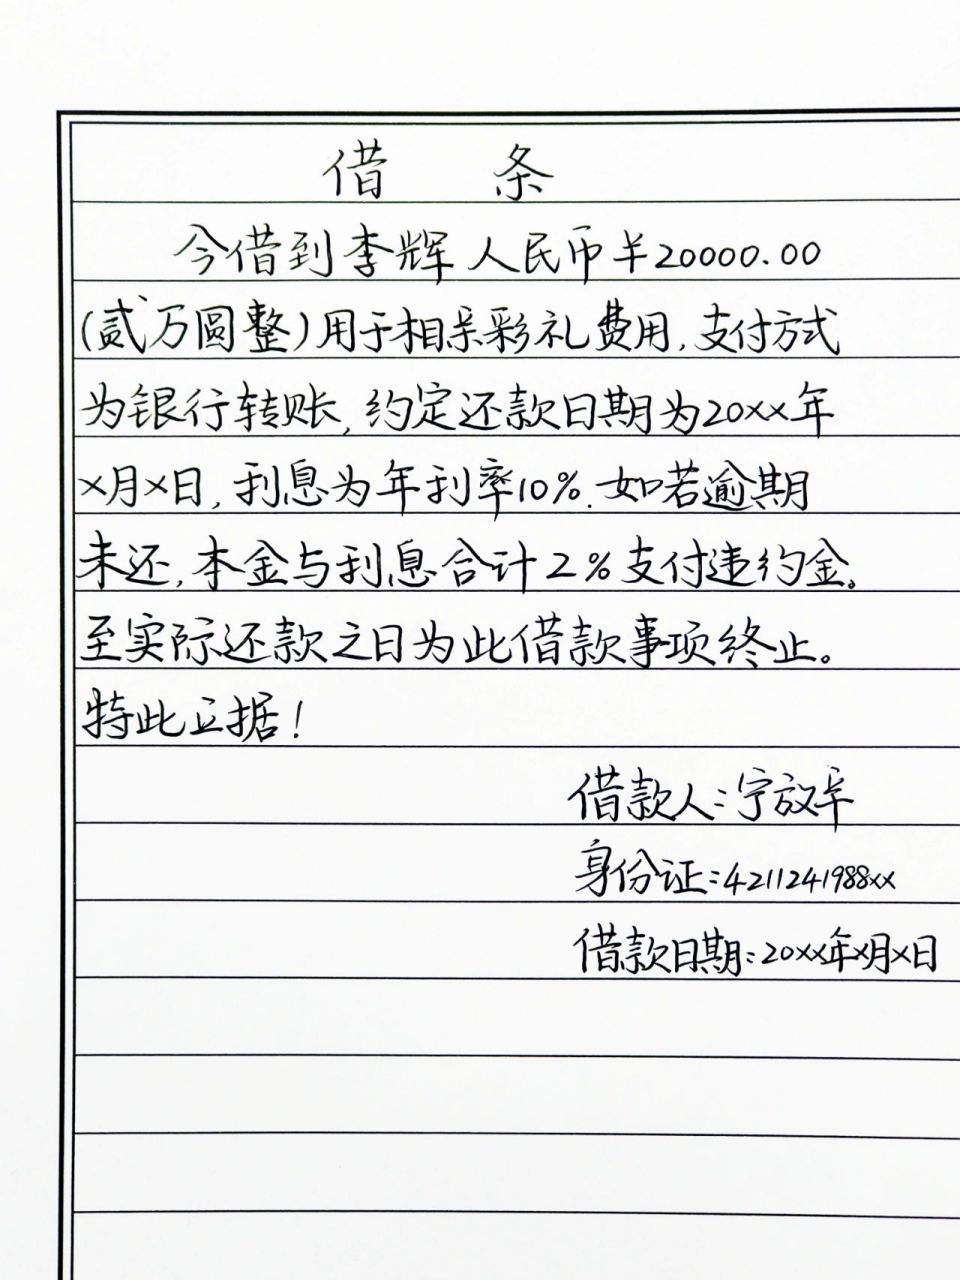 借 条
今借到李辉人民币¥20000.00
(贰万圆整)用于相亲彩礼费用,支付方式
为银行转账,约定还款日期为20xx年
x月x日,利息为年利率10%.如若逾期
未还,本金与利息合计2%支付违约金。
至实际还款之日为此借款事项终止。
特此立据!
借款人:宁放
身份证:4211241988xx
借款日期:20xx年x月x日